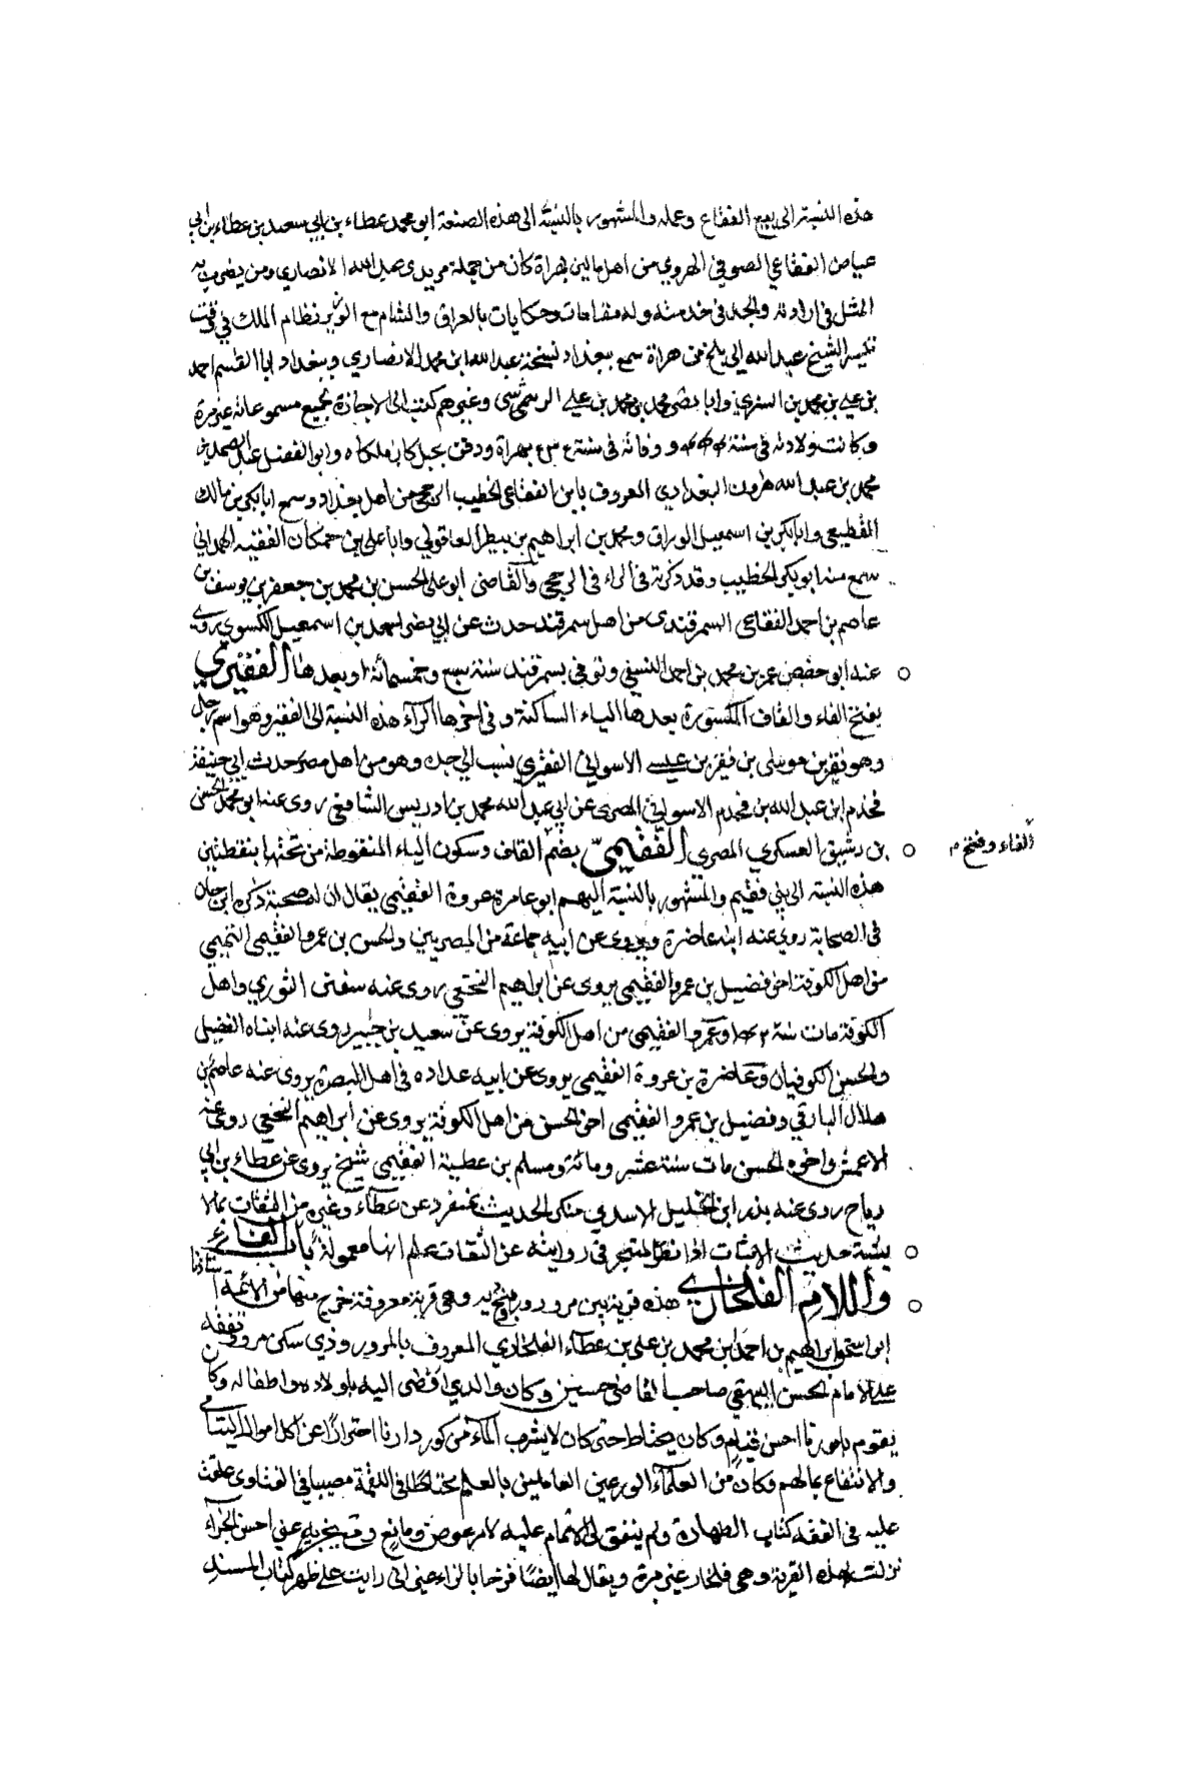 هذه النسبة الى بيع الفقاع وعمله والمشهور بالنسبة الى هذه الصنعة ابو محمد عطاء بن ابي سعيد بن عطاء بن ابي
عياض الفقاعي الصوفي الهروي من اهل مالين بهراة كان من جملة مريدى عبد الله الانصاري ومن يضرب به
المثل في ارادته والجد في خدمته وله مقامات وحكايات بالعراق والشام مع الوزير نظام الملك في وقت
تسيير الشيخ عبد الله الى بلخ من هراة سمع ببغداد شيخه عبد الله ابن محمد الانصاري وببغداد ابا القسم احمد
بن علي بن محمد بن السري وابا نصر محمد بن محمد بن علي وغيرهم كتب الى الاجازة بجميع مسموعاته غير مرة
وكانت ولادته في سنة ووفاته في سنة بهراة ودفن بجبل وابو الفضل عبد الصمد بن
محمد بن عبد الله هرون البغدادي المعروف بابن الفقاعي الخطيب الرخجي من اهل بغداد وسمع ابا بكر بن مالك
القطيعي وابا بكر بن اسمعيل الوراق ومحمد بن ابراهيم بن العاقولي وابا علي بن حمكان الفقيه الهمداني
سمع منه ابو بكر الخطيب وقد ذكرته في الراء في الرخجي والقاضي ابو علي الحسن بن محمد بن جعفر بن يوسف بن
عاصم بن احمد الفقاعي السمرقندى من اهل سمرقند حدث عن ابي نصر احمد بن اسمعيل الكسوى روى
عنه ابو حفص عمر بن محمد بن احمد النسفي وتوفي بسمرقند سنة سبع وخمسمائة او بعدها الفقيري
بفتح الفاء والقاف المكسورة بعدها الياء الساكنة وفي اخرها الرآء هذه النسبة الى الفقير وهو اسم رجل
وهو فقير بن موسى بن فقير بن عيسى الاسواني الفقيري نسب الى جده وهو من اهل مصر حدث ابي حنيفة
قحذم ابن عبد الله بن قحذم الاسواني المصري عن ابي عبد الله محمد بن ادريس الشافعي روى عنه ابو محمد الحسن
بن رشيق العسكري المصري الفقيميّ بضم القاف وسكون الياء المنقوطة من تحتها بنقطتين
الفاء وفتح م
هذه النسبة الى بني فقيم والمشهور بالنسبة اليهم ابو عامرة عروة الفقيمي يقال ان له صحبة ذكره ابن حبان
في الصحابة روى عنه ابنه غاضرة ويروى عن ابيه جماعة من المصريين والحسن بن عمرو الفقيمي التميمي
من اهل الكوفة اخو فضيل بن عمرو الفقيمي يروى عن ابراهيم النخعي روى عنه سفين الثوري واهل
الكوفة مات سنة وعمرو الفقيمي من اهل الكوفة يروى عن سعيد بن جبير روى عنه ابناه الفضيل
والحسن الكوفيان وغاضرة بن عروة الفقيمي يروى عن ابيه عداده في اهل البصرة يروى عنه عاصم بن
هلال البارقي وفضيل بن عمرو الفقيمي اخو الحسن من اهل الكوفة يروى عن ابراهيم النخعي روى عنه
الاعمش واخوه الحسن مات سنة عشر ومائة ومسلم بن عطية الفقيمي شيخ يروى عن عطاء بن ابي
رباح روى عنه بدر ابن الخليل الاسدي منكر الحديث يتفرد عن عطآء وغيره من الثقات بما لا
يشبه حديث الاثبات اذا نظر المتبحر في روايته عن الثقات علم انها معمولة باب الفاء
واللام الفلخاري هذه قرية بين مرورود وبنج ديه وهي قرية معروفة خرج منها من الائمة استاذنا
ابو اسحق ابراهيم بن احمد ابن محمد بن علي بن عطآء الفلخاري المعروف بالمروروذي سكن مرو وتفقه
على الامام الحسن البيهقي صاحب القاضي حسين وكان والدي افضى اليه باولاده واطفاله وكان
يقوم بامورنا احسن قيام وكان يحتاط حتى كان لا يشرب المآء من كوز دارنا احترازًا عن اكل اموال اليتامى
والانتفاع بمالهم وكان من العلمآء الورعين العاملين بالعلم محتاطًا في اللقمة مصيبا في الفتاوى علقت
عليه في الفقه كتاب الطهارة ولم يتفق لي الاتمام عليه لامر عوض ومانع وقع يجزيه عني احسن الجزآء
نزلت هذه القرية وهي فلخار غير مرة ويقال لها ايضًا فرخار بالراء غير اني رايت على ظهر كتاب المسند